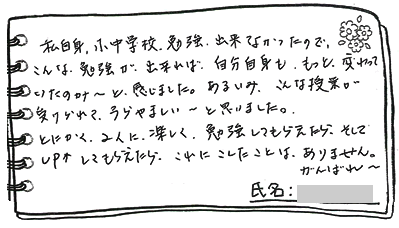 私自身、小中学校、勉強、出来なかったので、
こんな、勉強が、出来れば、自分自身も、もっと、変わって
いたのか〜と思いました。あるいみ、こんな授業が
受けられて、うらやましい〜と思いました。
とにかく、2人に、楽しく、勉強してもらえたら、そして
UP↑してもらえたら、これにこしたことは、ありません。
がんばれ〜
氏名：